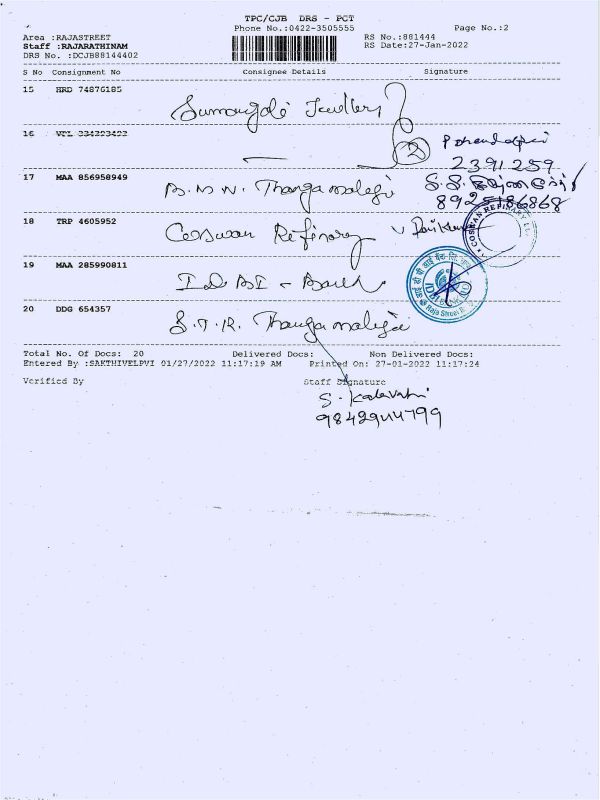 TPC/CJB DRS - PCT
Phone No.:0422-3505555 Page No.:2
Area :RAJASTREET RS No.:881444
Staff :RAJARATHINAM RS Date:27-Jan-2022
DRS No. :DCJB88144402
S No Consignment No Consignee Details Signature
15 HRD 74876185
Sumangali Jewllers
16 VTL 334323422
2
2391259
17 MAA 856958949
B.M.W. Thanga maligai
18 TRP 4605952
Coswan Refinary
COSWAN REFINARY
19 MAA 285990811
IDBI - Bank
IDBI BANK
Raja Street
20 DDG 654357
S.T.R. Thanga maligai
Total No. Of Docs: 20 Delivered Docs: Non Delivered Docs:
Entered By :SAKTHIVELPVI 01/27/2022 11:17:19 AM Printed On: 27-01-2022 11:17:24
Verified By Staff Signature
S. Kalavathi